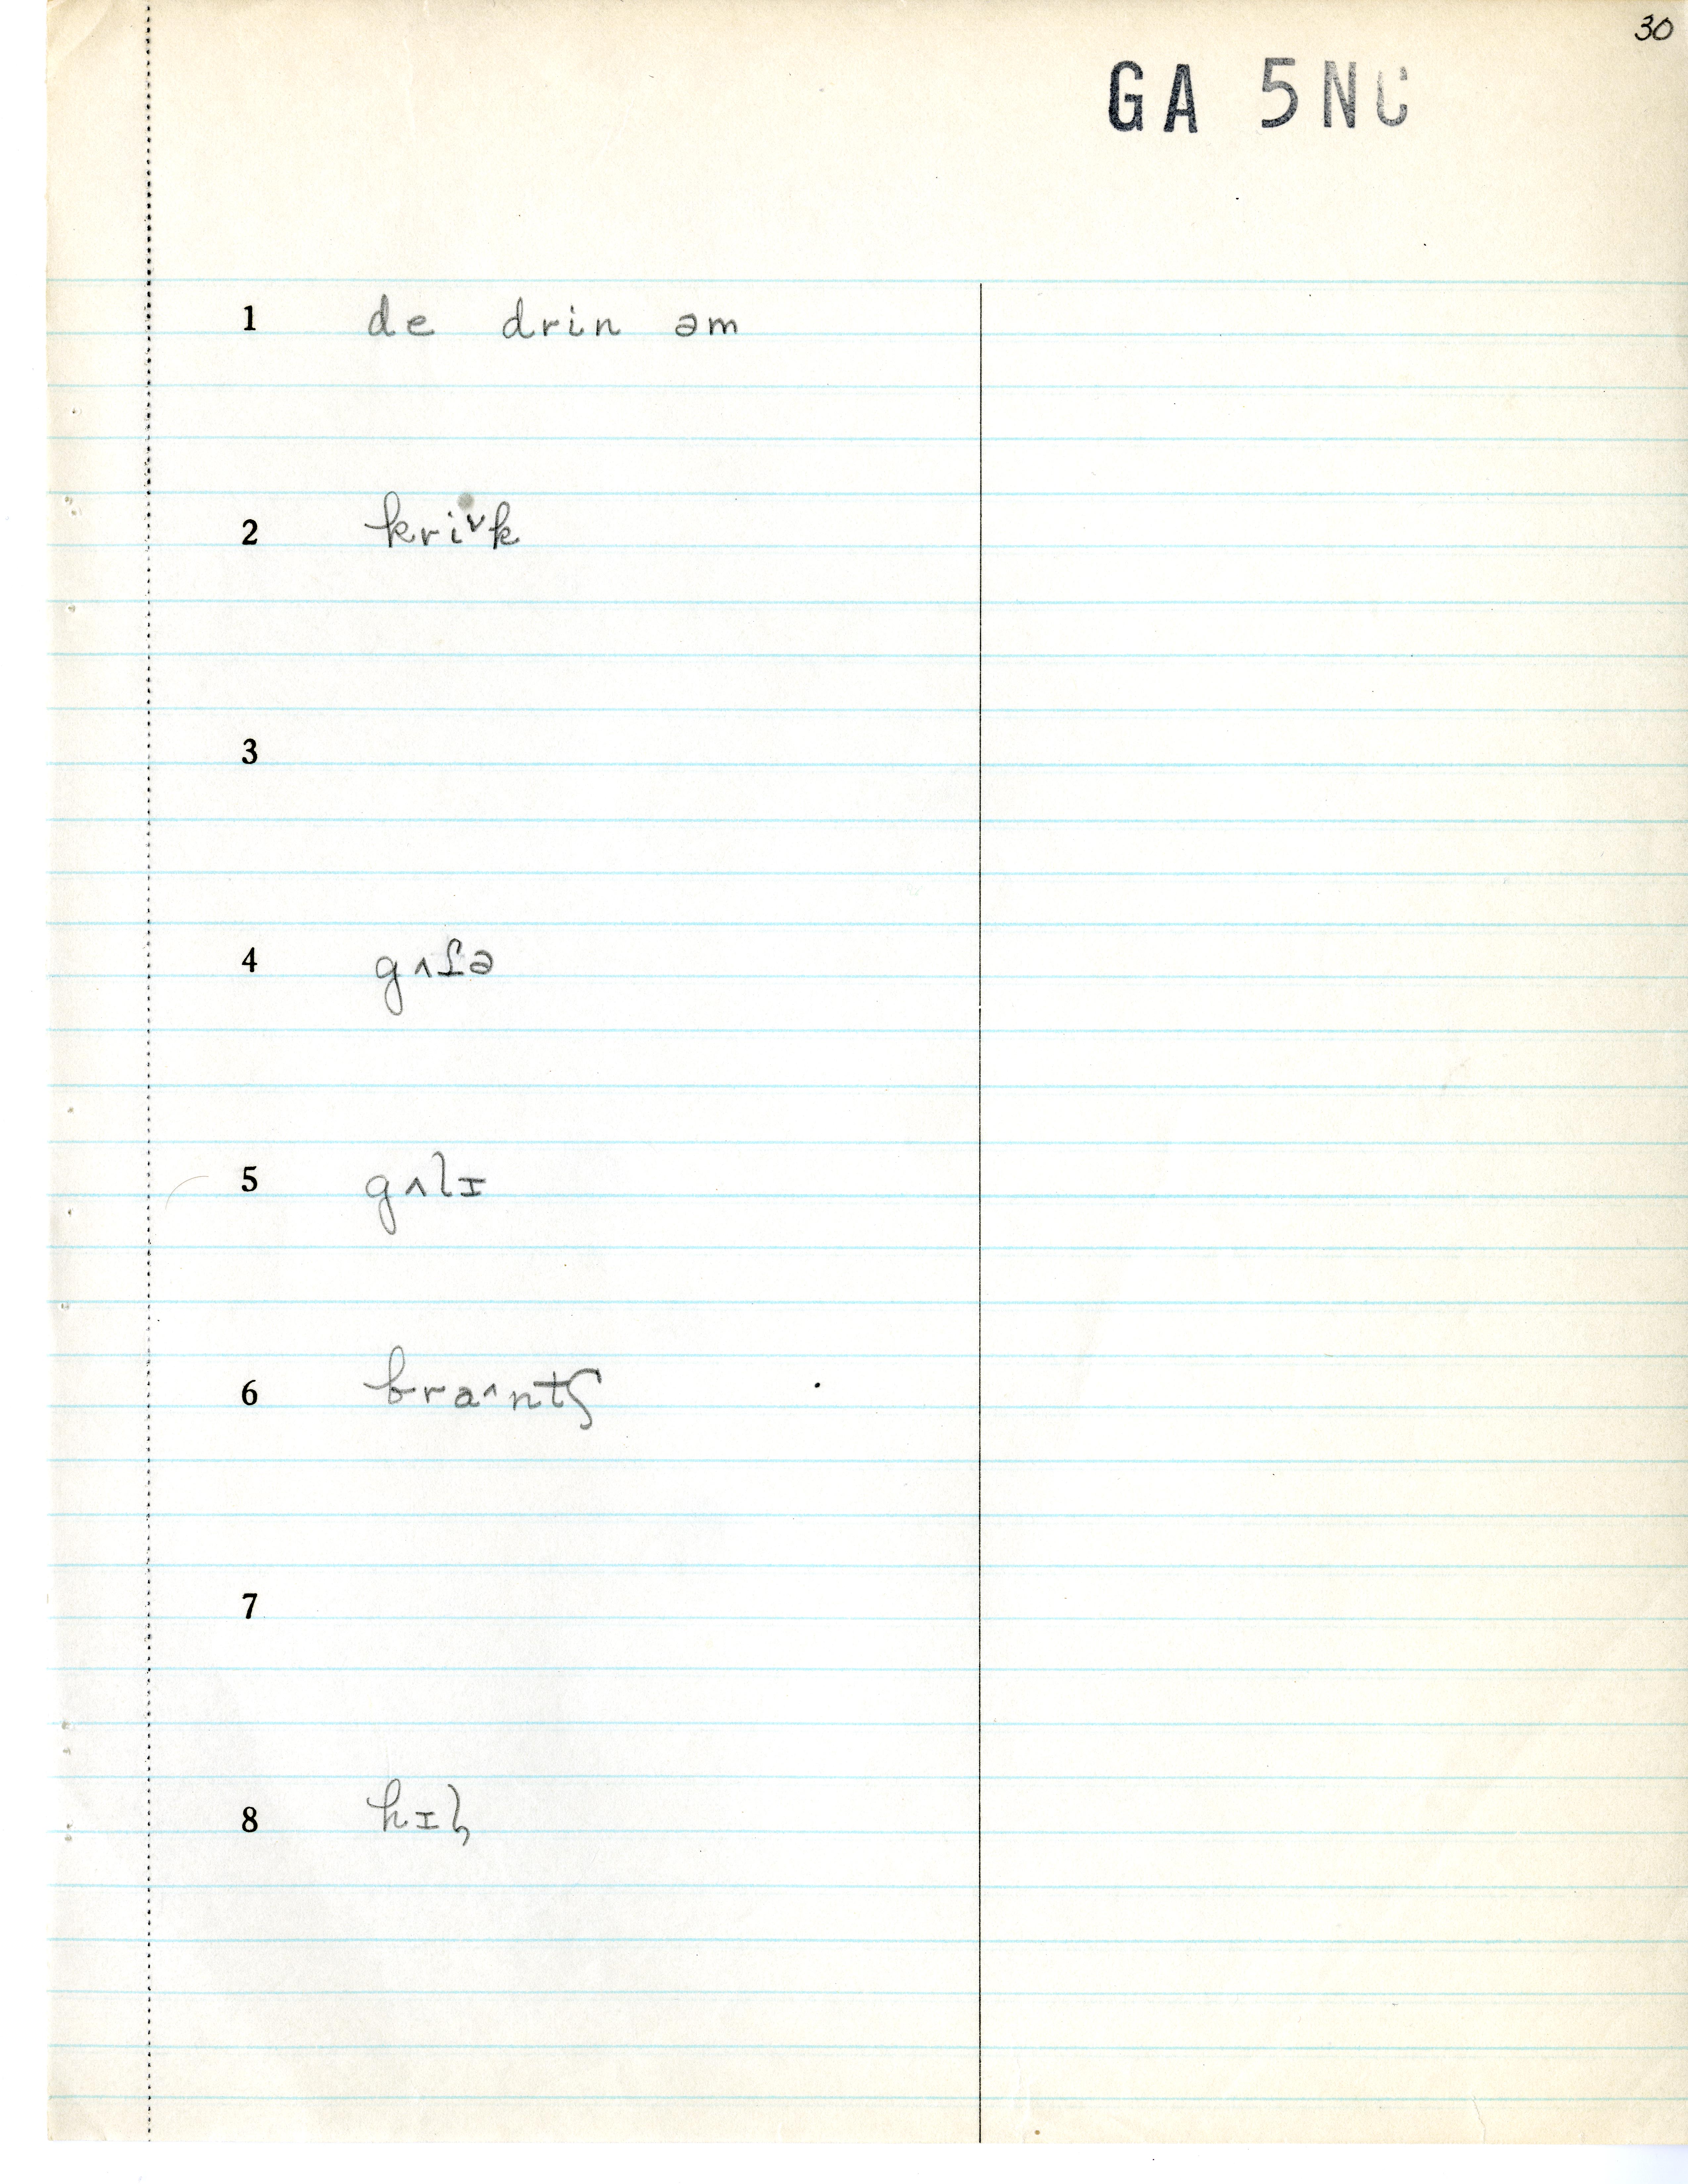 30
GA 5NC
1 de drin əm
2 kri˅k
3
4 gʌſə
5 gʌlɪ
6 bra^ntʃ
7
8 hɪɭ